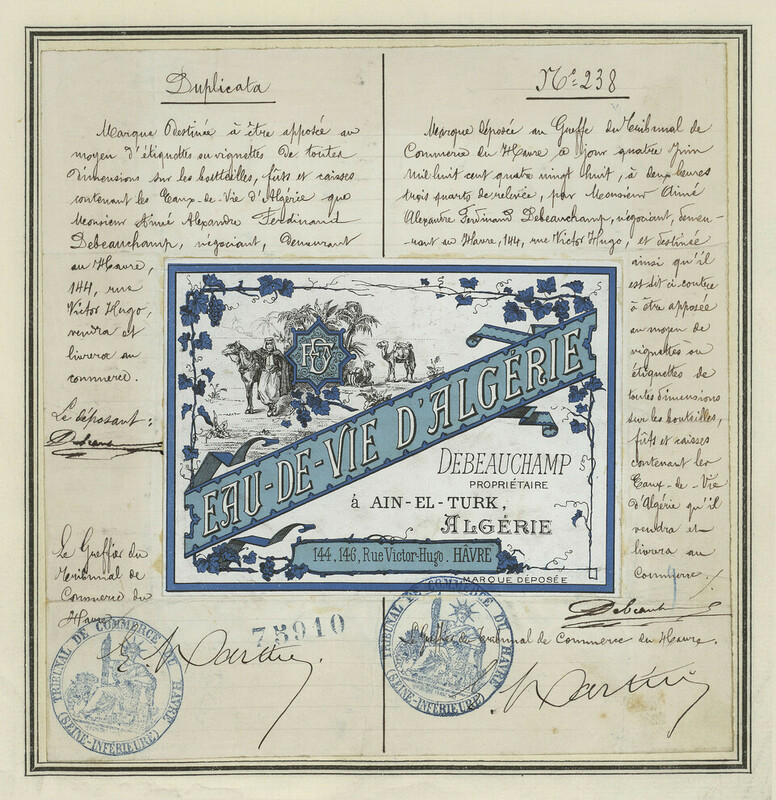 Duplicata
Marque destinée à être apposée au
moyen d'étiquettes ou vignettes de toutes
dimensions sur les bouteilles, fûts et caisses
contenant les Eaux-de-Vie d'Algérie que
Monsieur Aimé Alexandre Ferdinand
Debeauchamp, négociant, demeurant
au Havre,
144, rue
Victor Hugo,
vendra et
livrera au
commerce.
Le déposant:
Le Greffier du
Tribunal de
Commerce du
Havre
No 238
Marque déposée au Greffe du Tribunal de
Commerce du Havre ce jour quatre Juin
mil huit cent quatre vingt huit, à deux heures
trois quarts de relevée, par Monsieur Aimé
Alexandre Ferdinand Debeauchamp, négociant, demeu-
-rant au Havre, 144, rue Victor Hugo, et destinée
ainsi qu'il
est dit ci contre
à être apposée
au moyen de
vignettes ou
étiquettes de
toutes dimensions
sur les bouteilles,
fûts et caisses
contenant les
Eaux-de-Vie
d'Algérie qu'il
vendra et
livrera au
Commerce.
Le Greffier du Tribunal de Commerce du Havre.
EAU-DE-VIE D'ALGÉRIE
DEBEAUCHAMP
PROPRIÉTAIRE
à AIN-EL-TURK,
ALGÉRIE
144, 146, Rue Victor-Hugo, HÂVRE
MARQUE DÉPOSÉE
75910
TRIBUNAL DE COMMERCE DU HAVRE
(SEINE-INFÉRIEURE)
TRIBUNAL DE COMMERCE DU HAVRE
(SEINE-INFÉRIEURE)